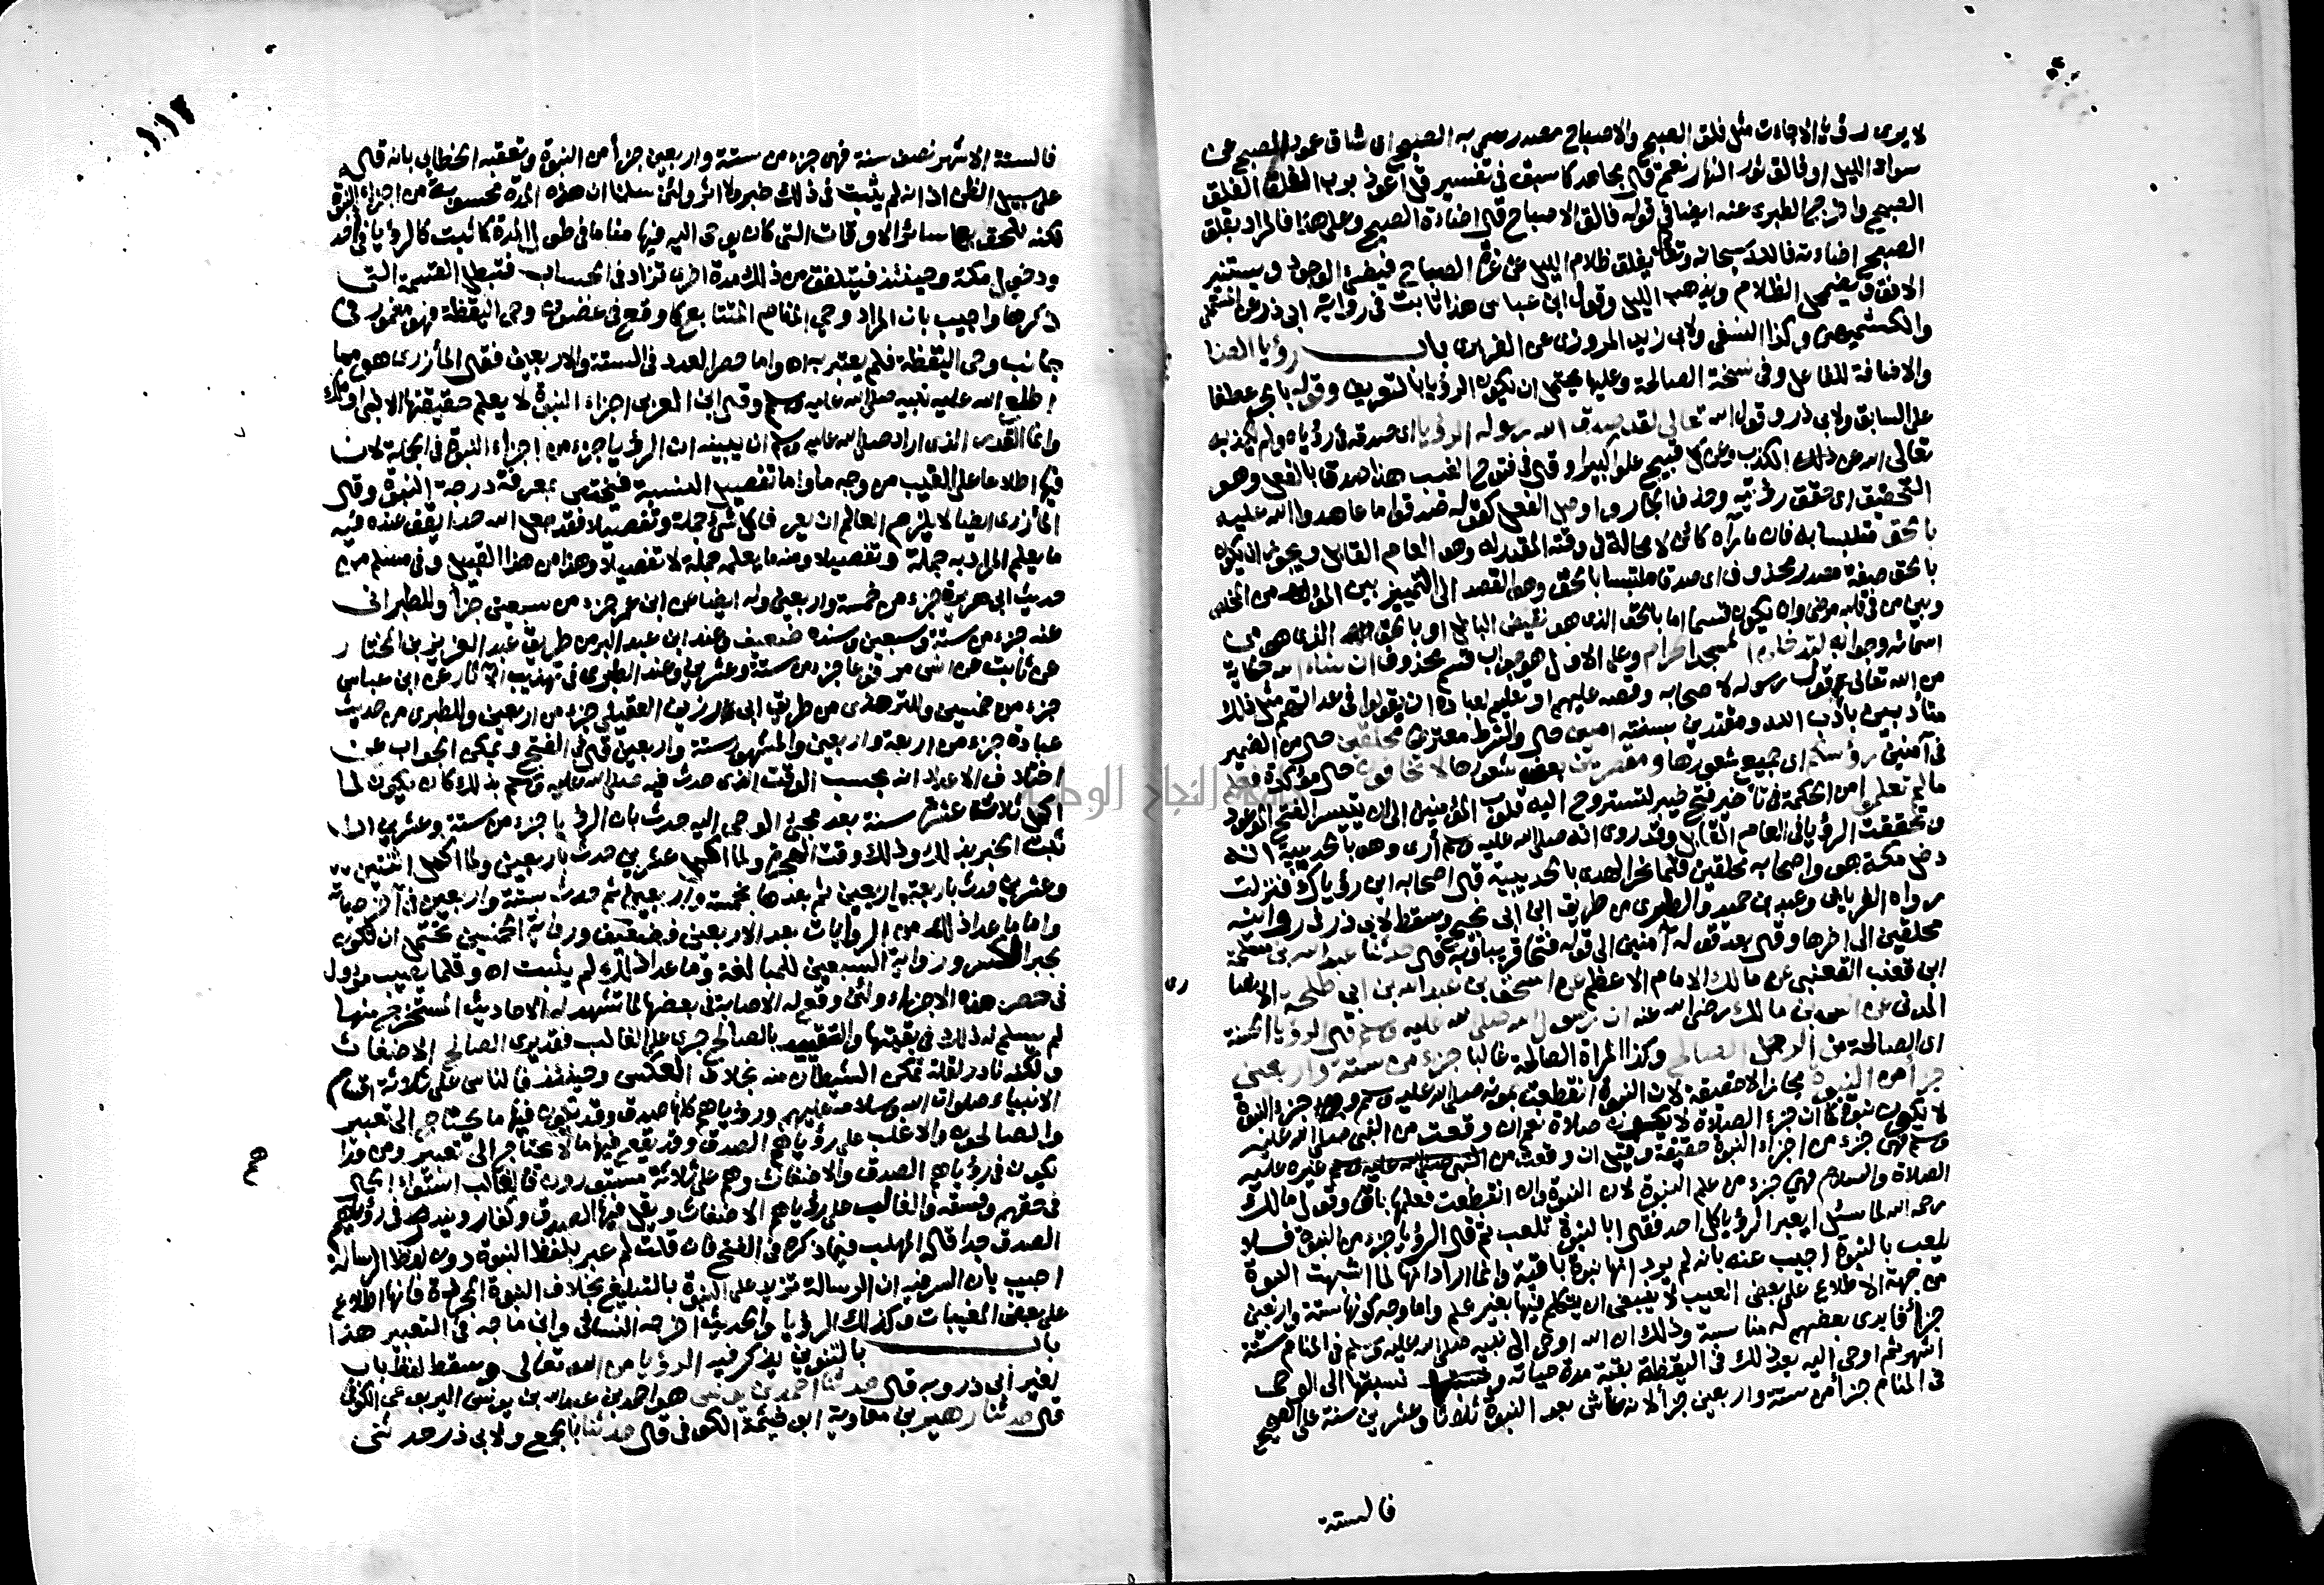 لا يرى رؤيا الا جاءت مثل فلق الصبح والاصباح مصدر سمي به الصبح اى شاق عمود الصبح عن
سواد الليل او فالق نور النهار نعم قال مجاهد كما سبق في تفسير قل أعوذ برب الفلق الفلق
الصبح واخرج الطبرى عنه ايضا في قوله فالق الاصباح قال اضاءة الصبح وعلى هذا فالمراد بفلق
الصبح اضاءته فالله سبحانه وتعالى يفلق ظلام الليل عن غرة الصباح فيضئ الوجود ويستنير
الافق ويضمحل الظلام ويذهب الليل وقول ابن عباس هذا ثابت في رواية ابى ذر عن المستملى
والكشميهنى وكذا النسفى ولابى زيد المروزى عن الفربرى باب رؤيا الصالحين
والاضافة للفاعل وفى نسخة الصالحة وعليها يحتمل ان يكون الرؤيا بالتعريف وقوله بالجر عطفا
على السابق ولابى ذر وقول الله تعالى لقد صدق الله رسوله الرؤيا اى صدقه فى رؤياه ولم يكذبه
تعالى الله عن ذلك الكذب وعن كل قبيح علوا كبيرا وقال فى فتوح الغيب هذا صدقا بالفعل وهو
التحقيق اى حقق رؤيته وحذف الجار واوصل الفعل كقوله صدقوا ما عاهدوا الله عليه
بالحق متلبسا به فان ما رآه كائن لا محالة فى وقته المقدر له وهو العام القابل ويجوز ان يكون
بالحق صفة مصدر محذوف اى صدقا ملتبسا بالحق وهو القصد الى التمييز بين المؤمن المخلص
وبين من فى قلبه مرض وان يكون قسما اما بالحق الذى هو نقيض الباطل او بالحق الذى هو من
اسمائه وجوابه لتدخلن المسجد الحرام وعلى الاول هو جواب قسم محذوف ان شاء الله حكاية
من الله تعالى قول رسوله لاصحابه وقصه عليهم او تعليم لعباده ان يقولوا فى عداتهم مثل ذلك
متأدبين بأدب الله ومقتدين بسنته امنين حال والشرط معترض محلقين حال من الضمير
فى آمنين رؤسكم اى جميع شعورها ومقصرين بعض شعورها لا تخافون حال مؤكدة فعلم
ما لم تعلموا من الحكمة فى تأخير فتح خيبر لتستروح اليه قلوب المؤمنين الى ان يتيسر الفتح الموعود
وتحققت الرؤيا فى العام القابل وقد روى انه صلى الله عليه وسلم أرى وهو بالحديبية انه
دخل مكة هو واصحابه محلقين فلما نحر الهدى بالحديبية قال اصحابه اين رؤياك فنزلت
رواه الفريابى وعبد بن حميد والطبرى من طريق ابن ابى نجيح وسقط لابى ذر فى روايته
محلقين الى اخرها وقال بعد قوله آمنين الى قوله فتحا قريبا وبه قال حدثنا عبد الله بن مسلمة
ابن قعنب القعنبى عن مالك الامام الاعظم عن اسحق بن عبد الله بن ابى طلحة الانصارى
المدنى عن انس بن مالك رضى الله عنه ان رسول الله صلى الله عليه وسلم قال الرؤيا الحسنة
اى الصالحة من الرجل الصالح وكذا المرأة الصالحة غالبا جزء من ستة واربعين
جزأ من النبوة مجازا لا حقيقة لان النبوة انقطعت بموته صلى الله عليه وسلم وجزء النبوة
لا يكون نبوة كما ان جزء الصلاة لا يكون صلاة نعم ان وقعت من النبى صلى الله عليه
وسلم فهى جزء من اجزاء النبوة حقيقة وقيل ان وقعت من غيره عليه
الصلاة والسلام فهى جزء من علم النبوة لان النبوة وان انقطعت فعلمها باق وقول مالك
رحمه الله لما سئل ايعبر الرؤيا كل احد فقال ابالنبوة تلعب ثم قال الرؤيا جزء من النبوة فلا
يلعب بالنبوة اجيب عنه بانه لم يرد انها نبوة باقية وانما اراد انها لما اشبهت النبوة
من جهة الاطلاع على بعض الغيب لا ينبغى ان يتكلم فيها بغير علم واما وجه كونها ستة واربعين
جزأ فابدى بعضهم له مناسبة وذلك ان الله اوحى الى نبيه صلى الله عليه وسلم فى المنام ستة
اشهر ثم اوحى اليه بعد ذلك فى اليقظة بقية مدة حياته ونسبتها الى الوحى
فى المنام جزأ من ستة واربعين جزأ لانه عاش بعد النبوة ثلاثا وعشرين سنة على الصحيح
فالستة
١١٢
فالستة الاشهر نصف سنة فهى جزء من ستة واربعين جزأ من النبوة وتعقبه الخطابى بانه قاله
على سبيل الظن اذ انه لم يثبت فى ذلك خبر ولا اثر ولئن سلمنا ان هذه المدة محسوبة من اجزاء النبوة
لكنه يلحق بها سائر الاوقات التى كان يوحى اليه فيها مناما فى طول المدة كما ثبت كالرؤيا فى أحد
ودخول مكة وحينئذ فيتلفق من ذلك مدة اخرى تزاد فى الحساب فتبطل القسمة التى
ذكرها واجيب بان المراد وحى المنام المتتابع كما وقع فى غضون وحى اليقظة فهو مغمور فى
جانب وحى اليقظة فلم يعتبر به اه واما حصر العدد فى الستة والاربعين فقال المأزرى هو مما
اطلع الله عليه نبيه صلى الله عليه وسلم وقال ابن العربى اجزاء النبوة لا يعلم حقيقتها الا نبى او ملك
وانما القدر الذى اراد صلى الله عليه وسلم ان يبينه ان الرؤيا جزء من اجزاء النبوة فى الجملة لان
فيها اطلاعا على الغيب من وجه ما واما تفصيل النسبة فيختص بمعرفة درجة النبوة وقال
المأزرى ايضا لا يلزم العالم ان يعرف كل شئ جملة وتفصيلا فقد جعل الله حدا يقف عنده فمنه
ما يعلم المراد به جملة وتفصيلا ومنه ما يعلمه جملة لا تفصيلا وهذا من هذا القبيل وفى مسلم من
حديث ابى هريرة جزء من خمسة واربعين وله ايضا عن ابن عمر جزء من سبعين جزأ وللطبرانى
عنه جزء من ستة وسبعين وسنده ضعيف وعند ابن عبد البر من طريق عبد العزيز بن المختار
عن ثابت عن انس مرفوعا جزء من ستة وعشرين وعند الطبرى فى تهذيب الآثار عن ابن عباس
جزء من خمسين وللترمذى من طريق ابى رزين العقيلى جزء من اربعين وللطبرى من حديث
عبادة جزء من اربعة واربعين والمشهور ستة واربعين قال فى الفتح ويمكن الجواب عن
اختلاف الاعداد انه بحسب الوقت الذى حدث فيه صلى الله عليه وسلم بذلك كان يكون لما
اكمل ثلاث عشرة سنة بعد مجئ الوحى اليه حدث بان الرؤيا جزء من ستة وعشرين ان
ثبت الخبر بذلك وذلك وقت الهجرة ولما اكمل عشرين حدث باربعين ولما اكمل اثنتين
وعشرين حدث باربعة واربعين ثم بعدها بخمسة واربعين ثم حدث بستة واربعين فى آخر حياته
واما ما عدا ذلك من الروايات بعد الاربعين فضعيف ورواية الخمسين تحتمل ان تكون
بجبر الكسر ورواية السبعين للمبالغة وما عدا ذلك لم يثبت اه وقلما يصيب مؤول
فى حصر هذه الاجزاء ولئن وقع له الاصابة فى بعضها لما تشهد له الاحاديث المستخرج منها
لم يسلم له ذلك فى بقيتها والتقييد بالصالح جرى على الغالب فقد يرى الصالح الاضغاث
ولكنه نادر لقلة تمكن الشيطان منه بخلاف العكس وحينئذ فالناس على ثلاثة اقسام
الانبياء صلوات الله وسلامه عليهم ورؤياهم كلها صدق وقد يكون فيها ما يحتاج الى تعبير
والصالحون والاغلب على رؤياهم الصدق وقد يقع فيها ما لا يحتاج الى تعبير ومن عدا
يكون فى رؤياهم الصدق والاضغاث وهم على ثلاثة مستورون فالغالب استواء الحال
فى حقهم وفسقة والغالب على رؤياهم الاضغاث ويقل فيها الصدق وكفار ويندر فى رؤياهم
الصدق جدا قاله المهلب فيما ذكره فى الفتح فان قلت لم عبر بلفظ النبوة دون لفظ الرسالة
اجيب بان السر فيه ان الرسالة تزيد على النبوة بالتبليغ بخلاف النبوة المجردة فانها اطلاع
على بعض المغيبات وكذلك الرؤيا والحديث اخرجه النسائى وابن ماجه فى التعبير هذا
باب بالتنوين يذكر فيه الرؤيا من الله تعالى وسقط لفظ باب
لغير ابى ذر وبه قال حدثنا احمد بن يونس هو احمد بن عبد الله بن يونس اليربوعى الكوفى
قال حدثنا زهير بن معاوية ابن خيثمة الكوفى قال حدثنا بالجمع ولابى ذر حدثنى